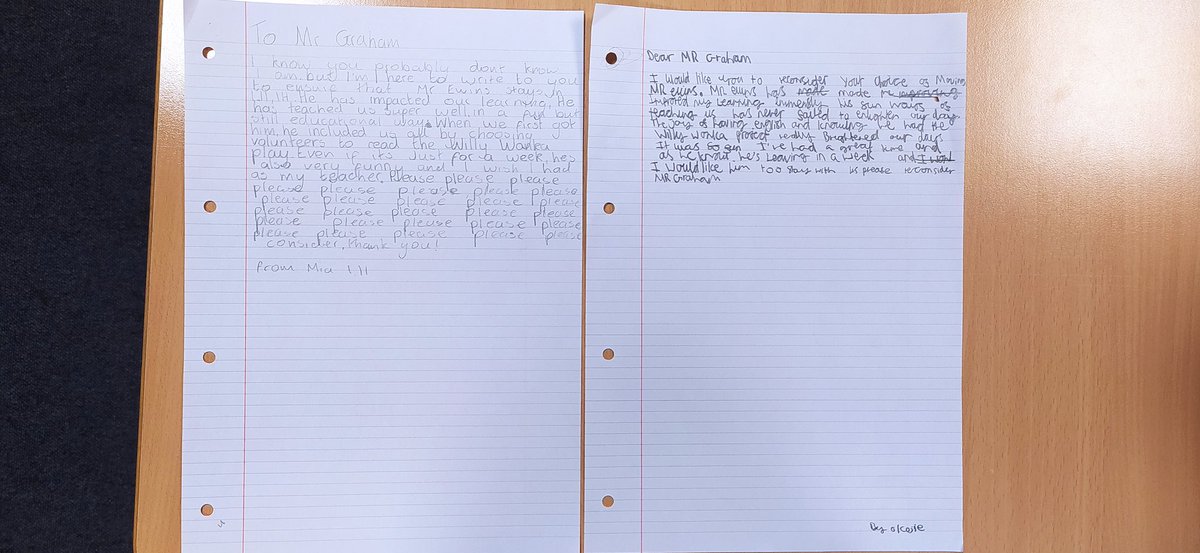 To Mr Graham
I know you probably don't know
I am but I'm here to write to you
to ensure that Mr Ewins stays in
He has impacted our learning. He
has teached us super well, in a fun but
still educational way. When we first got
him, he included us all by choosing
volunteers to read the Willy Wonka
play. Even if it's just for a week, he's
also very funny and I wish I had
as my teacher. Please please please
please please please please please
please please please please please
please please please please please
please please please please please
please please please please please
consider, thank you!
from Mia
Dear MR Graham
I would like you to reconsider your choice of Moving
MR ewins. Mr ewins has made made
my Learning immensly his fun ways of
teaching us has never failed to enlighten our days
the joy of having english and knowing we had the
Willy wonka project really Brightened our days
It was so fun I've had a great time and
as he know he's Leaving in a week and I want
I would like him too stay with us please reconsider
MR Graham